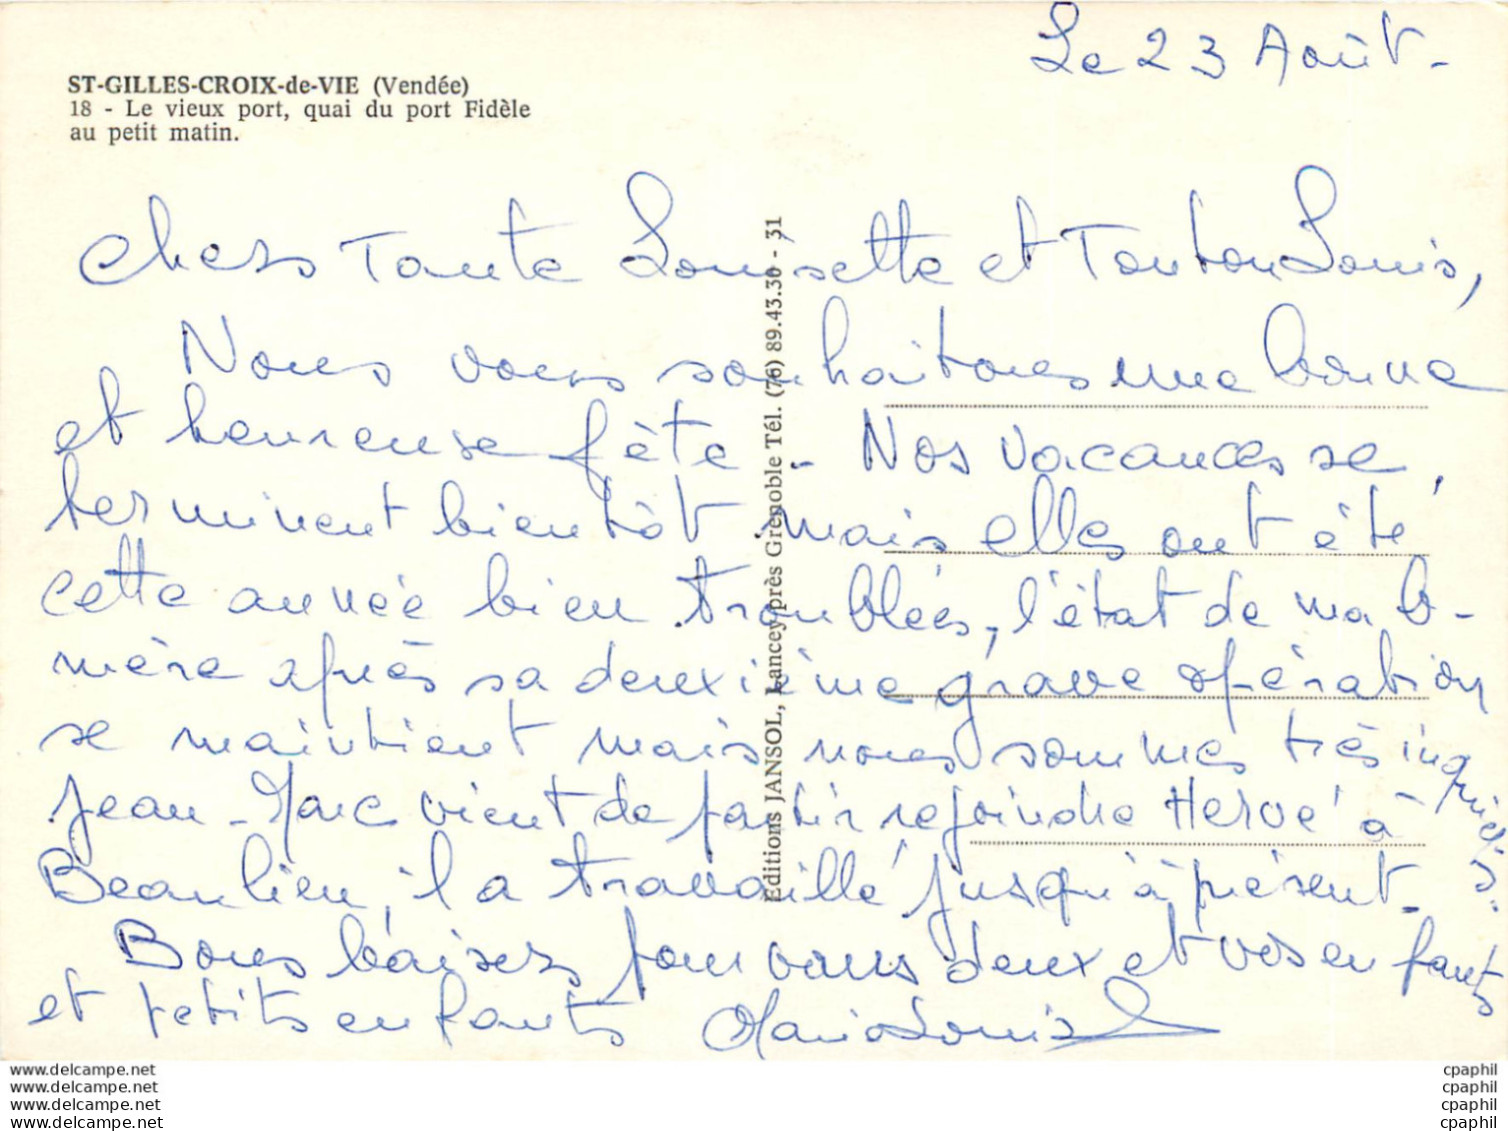 Le 23 Août -
ST-GILLES-CROIX-de-VIE (Vendée)
18 - Le vieux port, quai du port Fidèle
au petit matin.
Chers Tante Louisette et Tonton Louis,
Nous vous souhaitons une bonne
et heureuse fête - Nos vacances se
terminent bientôt mais elles ont été
cette année bien troublées, l'état de ma b-
mère après sa deuxième grave opération
se maintient mais nous sommes très inquiets.
Jean-Marc vient de partir rejoindre Hervé à
Beaulieu, il a travaillé jusqu'à présent -
Bons baisers pour vous deux et vos enfants
et petits enfants Marie Louise
Editions JANSOL, Lancey près Grenoble Tél. (76) 89.43.36 - 31
www.delcampe.net
www.delcampe.net
www.delcampe.net
www.delcampe.net
cpaphil
cpaphil
cpaphil
cpaphil